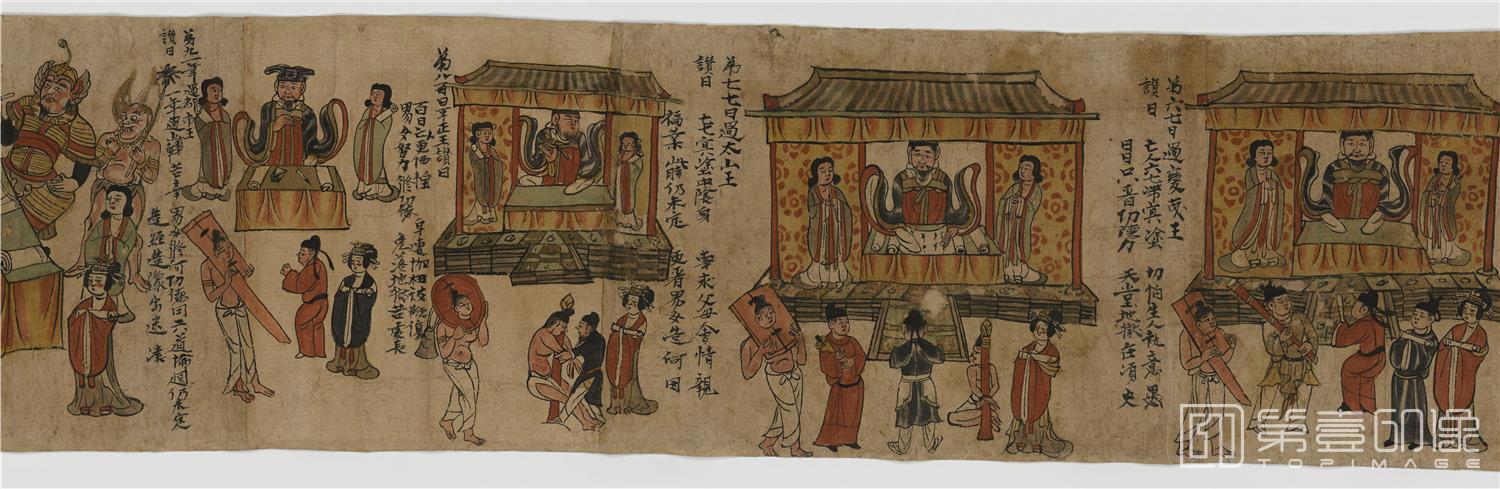 第六七日過變成王
讚曰 亡人六七滯冥塗 切怕生人執意愚
日日只看功德力 天堂地獄在須臾
第七七日過太山王
讚曰 七七冥塗中陰身 專求父母會情親
福業此時仍未定 更看男女造何因
第八百日平正王讚曰
百日亡人更恓惶 身遭枷杻被鞭傷
男女努力修 免落地獄苦處長
第九一年過都市王
讚曰 一年過此轉苦辛 男女修何功德因六道輪迴仍未定
造經造像出迷津
第壹印像
TOPIMAGE